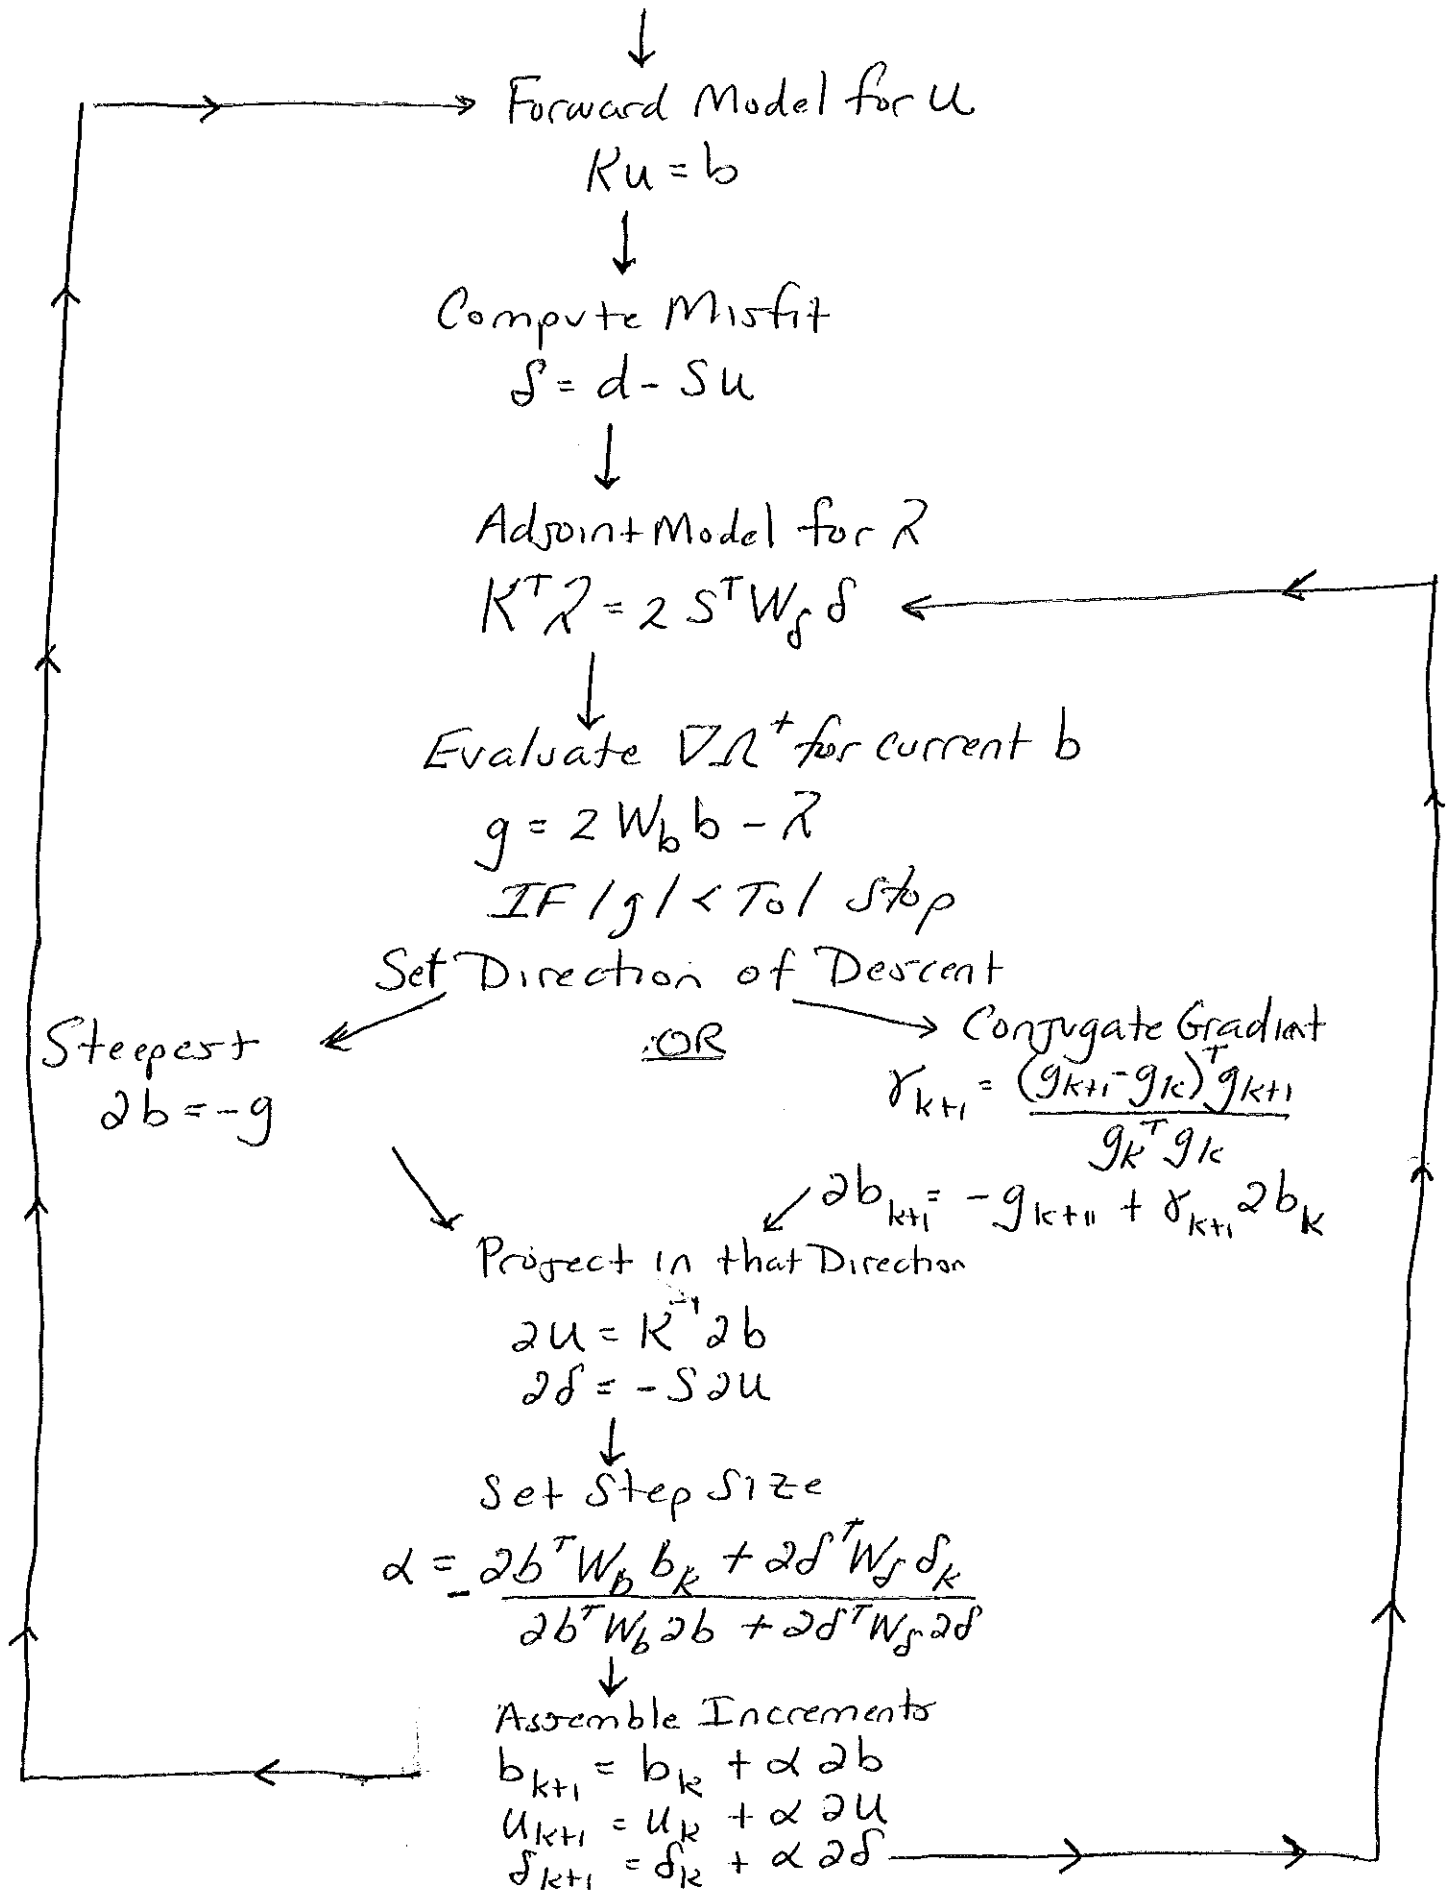 Forward Model for u
Ku = b
Compute Misfit
δ = d - Su
Adjoint Model for λ
Kᵀλ = 2 SᵀW_δ δ
Evaluate ∇Ω⁺ for current b
g = 2 W_b b - λ
IF |g| < Tol Stop
Set Direction of Descent
Steepest
∂b = -g
OR
Conjugate Gradient
γ_{k+1} = (g_{k+1} - g_k)ᵀ g_{k+1} / g_kᵀ g_k
∂b_{k+1} = -g_{k+1} + γ_{k+1} ∂b_k
Project in that Direction
∂u = K⁻¹ ∂b
∂δ = -S ∂u
Set Step Size
α = - ∂bᵀ W_b b_k + ∂δᵀ W_δ δ_k / ∂bᵀ W_b ∂b + ∂δᵀ W_δ ∂δ
Assemble Increments
b_{k+1} = b_k + α ∂b
u_{k+1} = u_k + α ∂u
δ_{k+1} = δ_k + α ∂δ